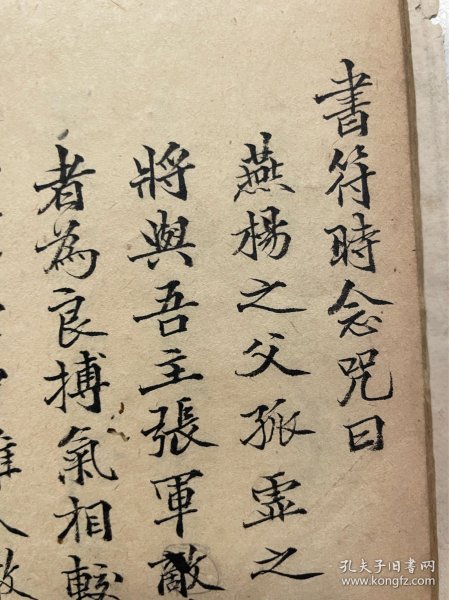 書符時念咒曰
燕楊之父孤虛之
將與吾主張軍敵
者為良搏氣相較
人敵
孔夫子旧书网
www.kongfz.com